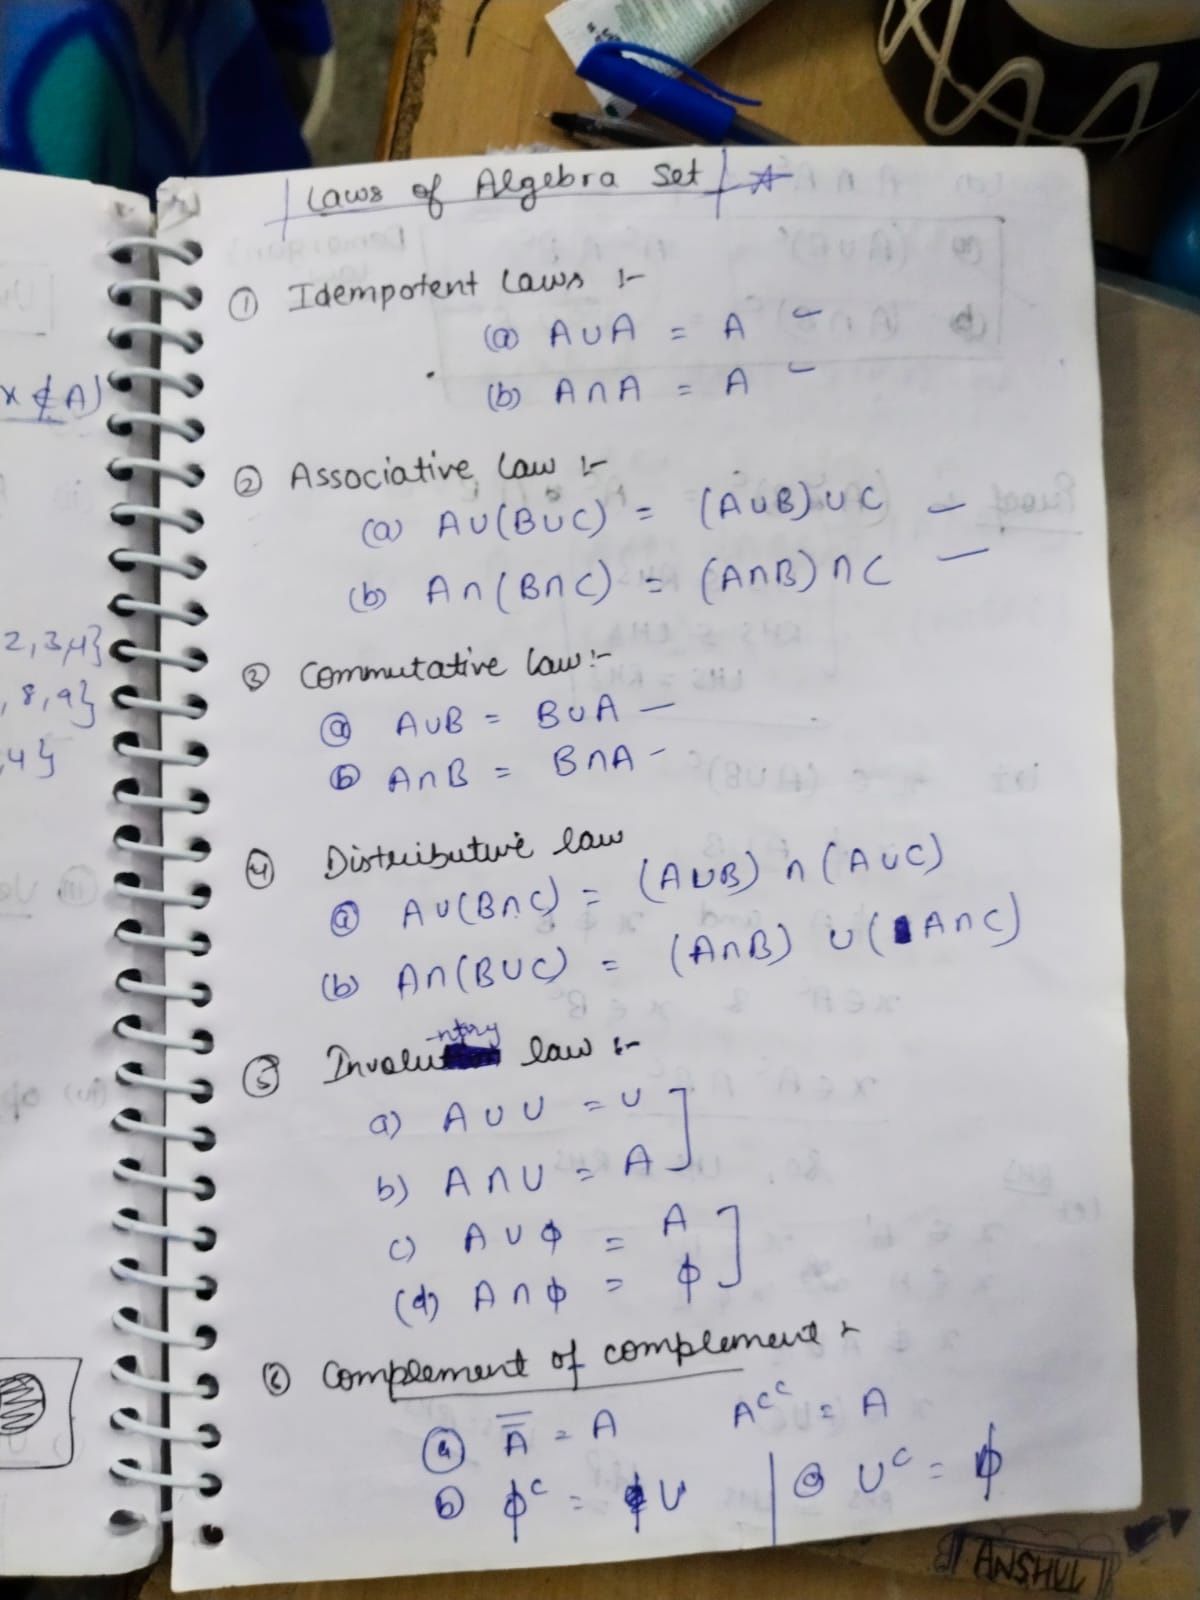 Laws of Algebra Set
① Idempotent Laws :-
(a) A∪A = A
(b) A∩A = A
② Associative Law :-
(a) A∪(B∪C) = (A∪B)∪C
(b) A∩(B∩C) = (A∩B)∩C
③ Commutative Law :-
ⓐ A∪B = B∪A
ⓑ A∩B = B∩A
④ Distributive law
ⓐ A∪(B∩C) = (A∪B) ∩ (A∪C)
(b) A∩(B∪C) = (A∩B) ∪ (A∩C)
⑤ Involuntry law :-
a) A∪U = U
b) A∩U = A
c) A∪ϕ = A
(d) A∩ϕ = ϕ
⑥ Complement of complement :-
ⓐ A̿ = A   Aᶜᶜ = A
ⓑ ϕᶜ = U | ⓒ Uᶜ = ϕ
x ∉ A)
2,3,4}
,8,9}
,4}
ANSHUL